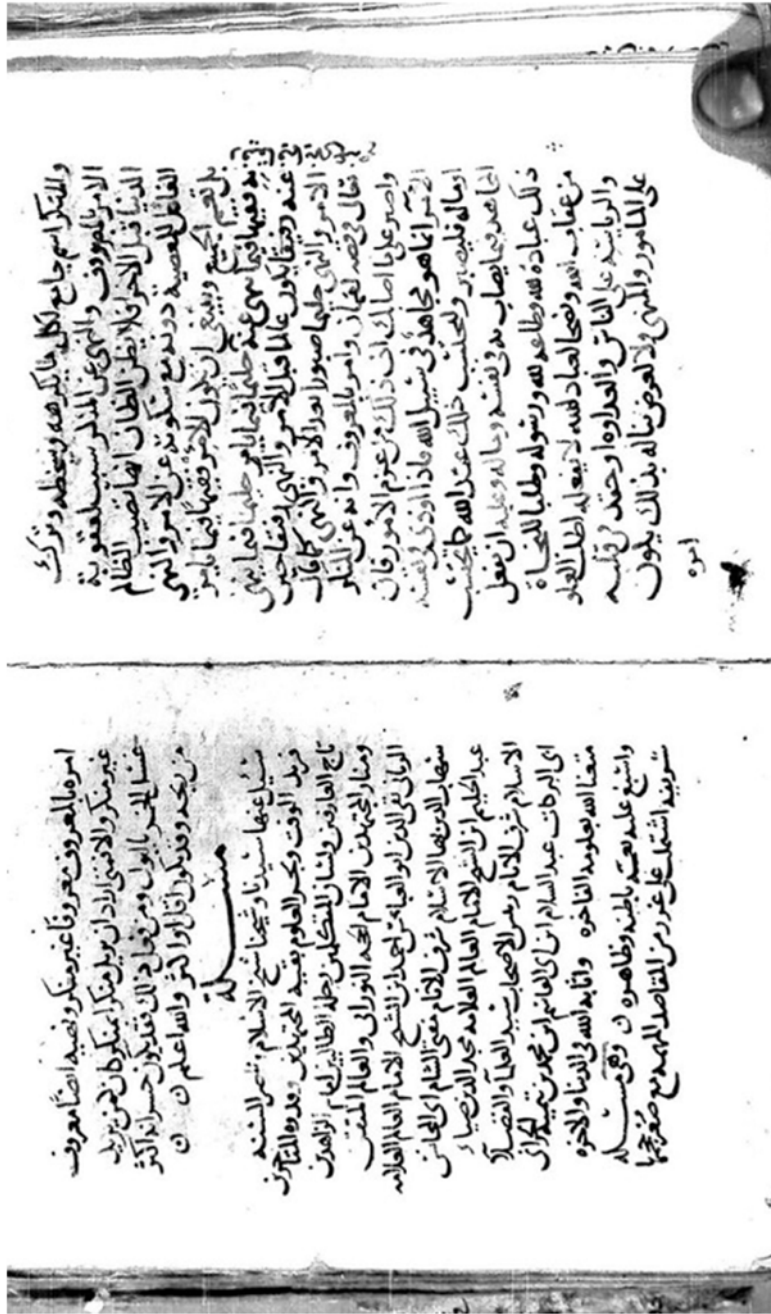 والمنكر اسم جامع لكل ما يكرهه ويسخطه وترك
الامر بالمعروف والنهي عن المنكر سبب لعقوبة
الدنيا قبل الاخرة فلا يظن الظان انها تصيب الظالم
الفاعل للمعصية دونه مع سكوته عن الامر والنهي
بل تعم الجميع وينبغي ان يكون الامر فقيها فيما يامر
به فقيها فيما ينهى عنه حليما فيما يامر حليما فيما ينهى
عنه رفيقا يكون عالما قبل الامر والنهي رفيقا حين
الامر والنهي حليما صبورا بعد الامر والنهي كما قال
تعالى في قصه لقمان وامر بالمعروف وانه عن المنكر
واصبر على ما اصابك ان ذلك من عزم الامور فان
الآمر انما هو مجاهد في سبيل الله فاذا اوذي في نفسه
او ماله فليصبر وليحتسب ذلك عند الله كما يحتسب
المجاهد فيما يصاب به في نفسه وماله وعليه ان يفعل
ذلك عبادة لله وطاعة لله ورسوله وطلبا للنجاة
من عقاب الله ونصحا لعباد الله لا يفعله لطلب العلو
والرياسة على الناس والعداوه او حقد في قلبه
على المامور والمنهي ولا لغرض يناله بذلك يكون
امره
امره بالمعروف معروفا غير منكر ونهيه ايضا معروف
غير منكر والا فمتى اراد ان يزيل منكرا بمنكر كان كمن يريد
غسل الخمر بالبول ومن فعل ذلك فقد يكون خسرانه اكثر
من ربحه وقد يكون اقل او اكثر والله اعلم ن ن
مسلة
سيل عنها سيدنا وشيخنا شيخ الاسلام شمس السنه
فريد الوقت وبحر العلوم بقية المجتهدين وعدة المتاخرين
تاج العارفين ولسان المتكلمين رحلة الطالبين امام الزاهدين
ومنار المجتهدين الامام الحجة النوراني والعالم المتقن
الرباني تقي الدين ابو العباس احمد ابن الشيخ الامام العالم العلامه
شهاب الدين بها الاسلام شرف الانام مفتي الشام ابي المحاسن
عبد الحليم ابن الشيخ الامام العالم العلامه مجد الدين ضياء
الاسلام شرف الانام رييس الاصحاب سيد العلما والفضلا
ابي البركات عبد السلام ابن ابي القاسم ابن محمد بن تيمية الحراني
متعنا الله بعلومه الفاخره واثابه الله في الدنيا والاخره
واسبغ عليه نعمه باطنه وظاهره ن وهي مسلة
شريفه اشتملت على غرر من المقاصد المهمه مع صغر حجمها